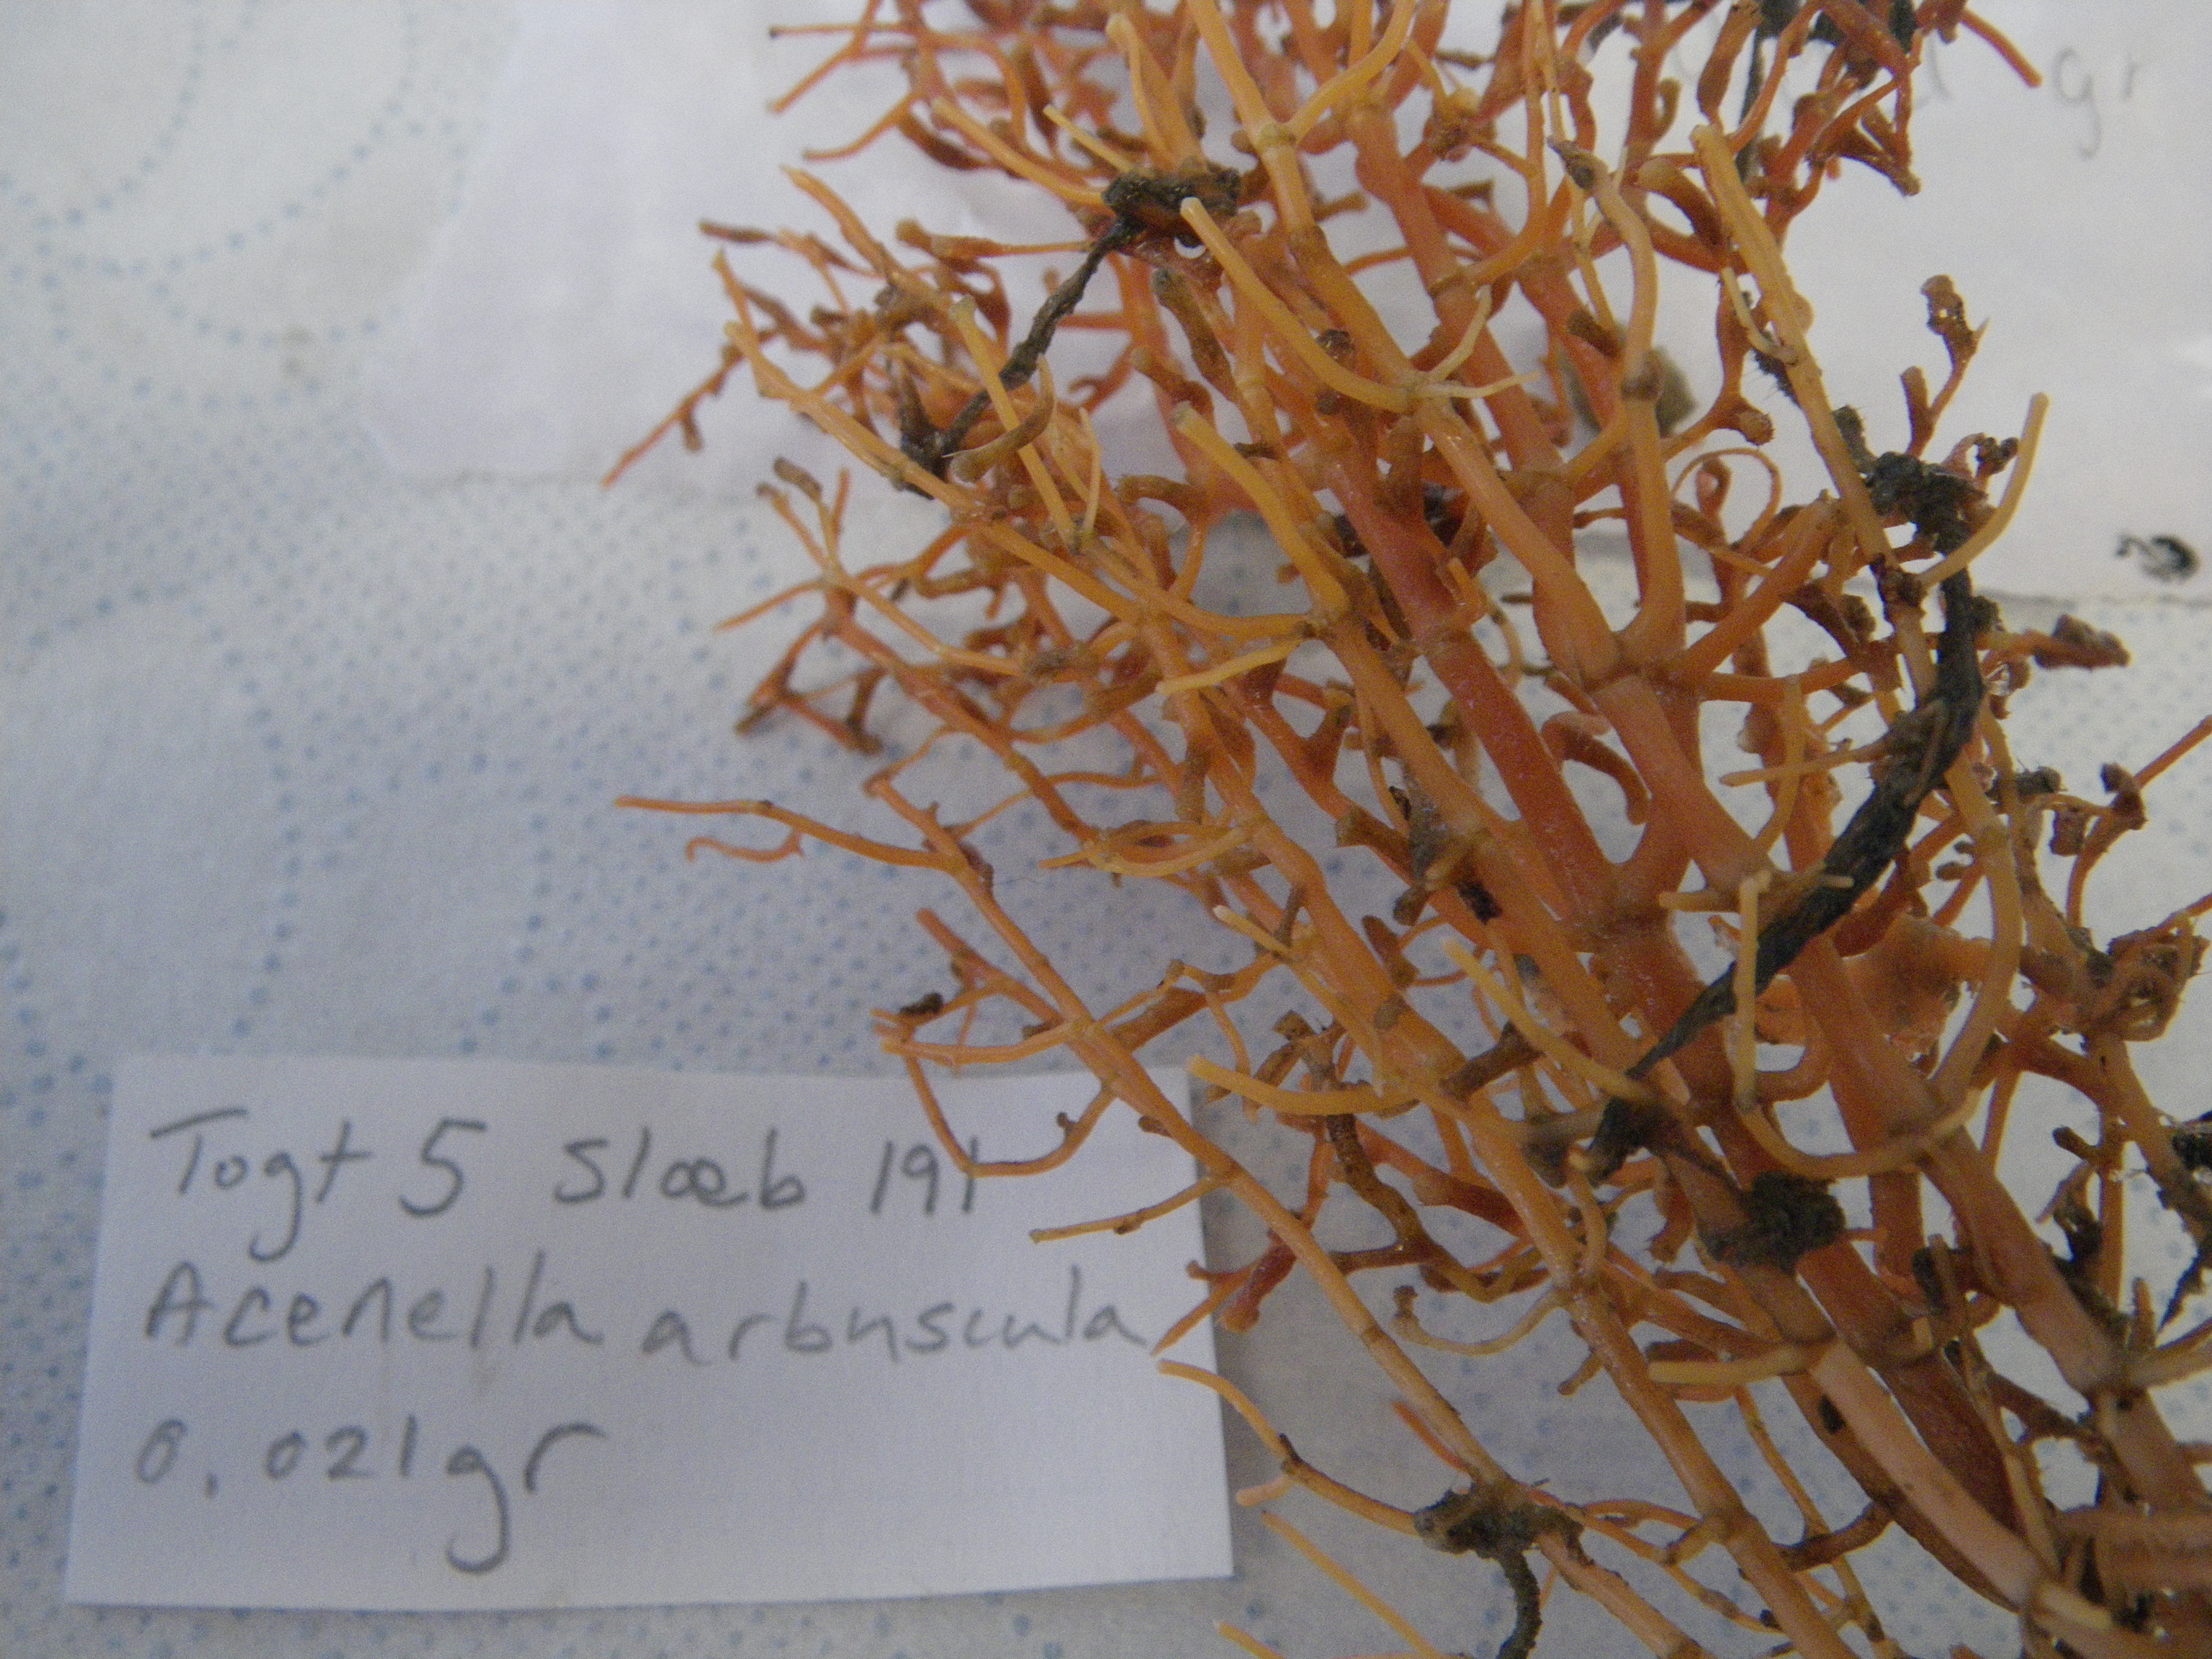 gr
Togt 5 Slæb 191
Acenella arbuscula
0.021gr